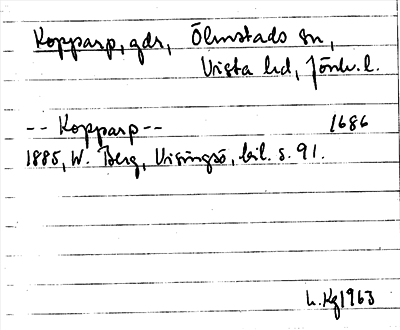 Kopparp, gdr, Ölmstads sn,
Vista hd, Jönk. l.
-- Kopparp -- 1686
1885, W. Berg, Visingsö, bil. s. 91.
L. Kg 1963